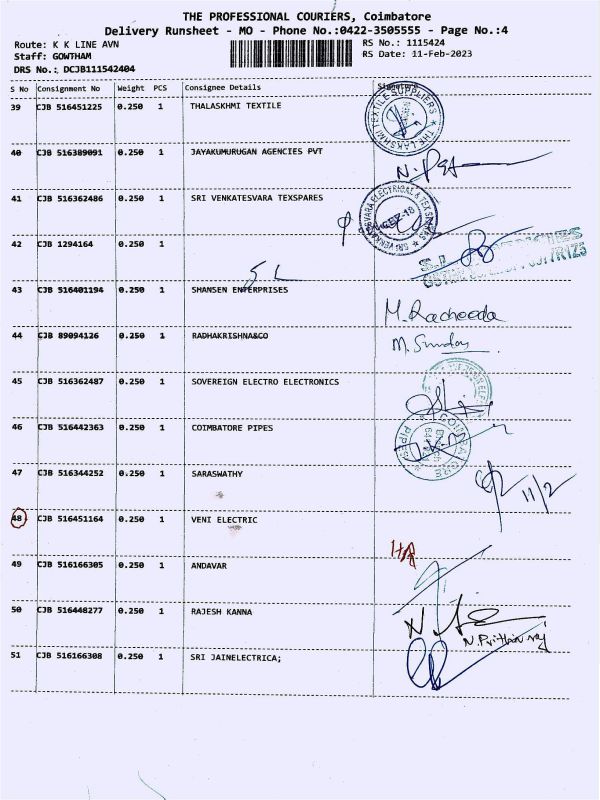 THE PROFESSIONAL COURIERS, Coimbatore
Delivery Runsheet - MO - Phone No.:0422-3505555 - Page No.:4
Route: K K LINE AVN RS No.: 1115424
Staff: GOWTHAM RS Date: 11-Feb-2023
DRS No.: DCJB111542404
S No Consignment No Weight PCS Consignee Details Signature
39 CJB 516451225 0.250 1 THALASKHMI TEXTILE
THE LAKSHMI TEXTILE SUPPLIERS
40 CJB 516389091 0.250 1 JAYAKUMURUGAN AGENCIES PVT
41 CJB 516362486 0.250 1 SRI VENKATESVARA TEXSPARES
42 CJB 1294164 0.250 1
43 CJB 516401194 0.250 1 SHANSEN ENTERPRISES
M. Racheeda
44 CJB 89094126 0.250 1 RADHAKRISHNA&CO
M. Sunday
45 CJB 516362487 0.250 1 SOVEREIGN ELECTRO ELECTRONICS
46 CJB 516442363 0.250 1 COIMBATORE PIPES
COIMBATORE PIPES
47 CJB 516344252 0.250 1 SARASWATHY
11/2
48 CJB 516451164 0.250 1 VENI ELECTRIC
49 CJB 516166305 0.250 1 ANDAVAR
50 CJB 516448277 0.250 1 RAJESH KANNA
51 CJB 516166308 0.250 1 SRI JAINELECTRICA;